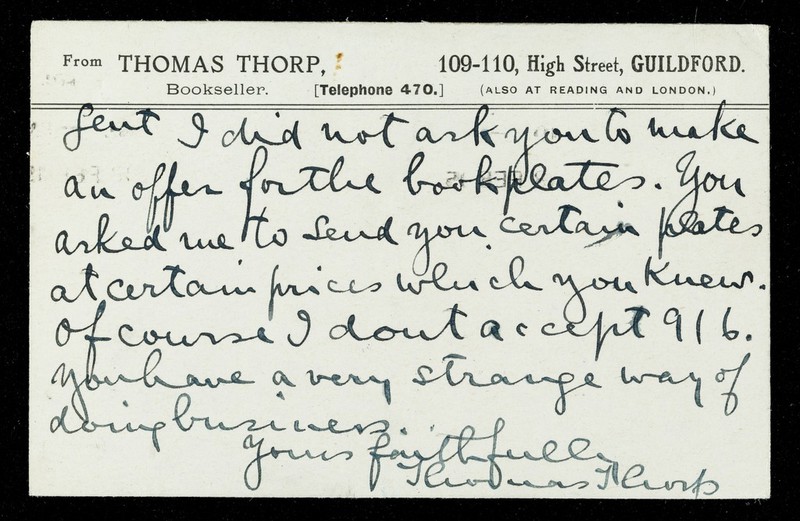 From THOMAS THORP, 109-110, High Street, GUILDFORD.
Bookseller. [Telephone 470.] (ALSO AT READING AND LONDON.)
Sent I did not ask you to make
an offer for the bookplates. You
asked me to send you certain plates
at certain prices which you knew.
Of course I dont accept 9/6.
You have a very strange way of
doing business.
Yours faithfully
Thomas Thorp